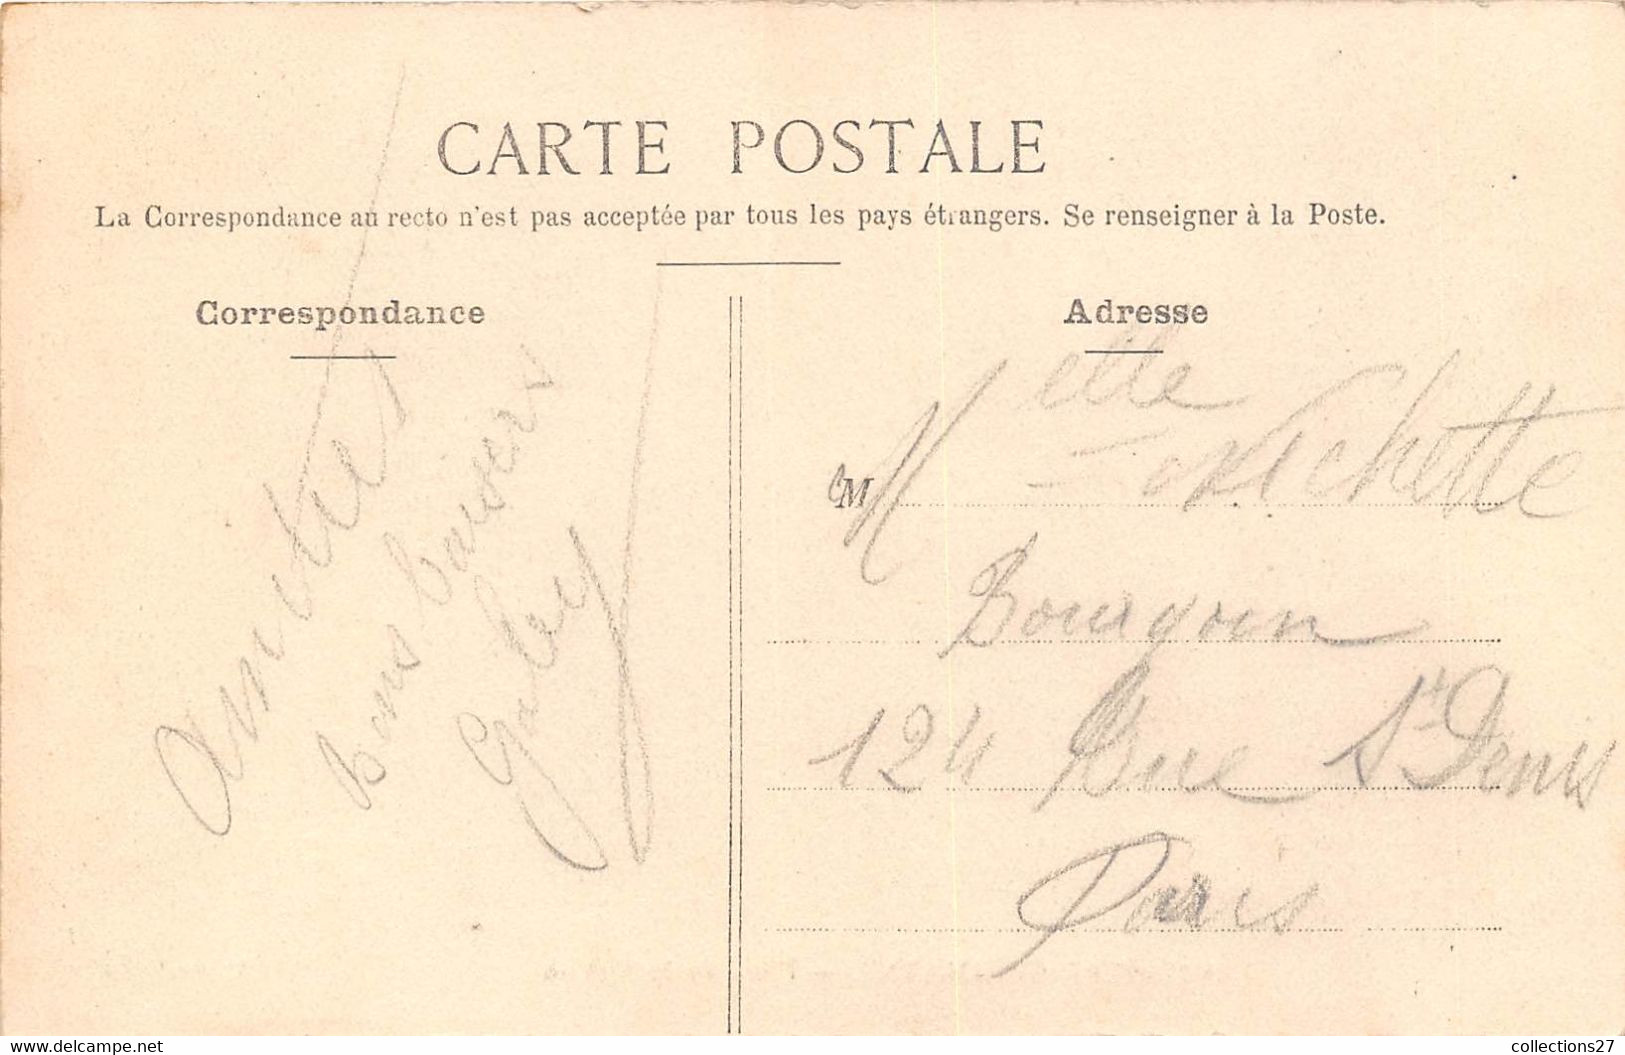 CARTE POSTALE
La Correspondance au recto n'est pas acceptée par tous les pays étrangers. Se renseigner à la Poste.
Correspondance
amitiés
bons baisers
Adresse
Melle
M
Bourgoin
124 Rue St Denis
Paris
https://www.delcampe.net
collections27